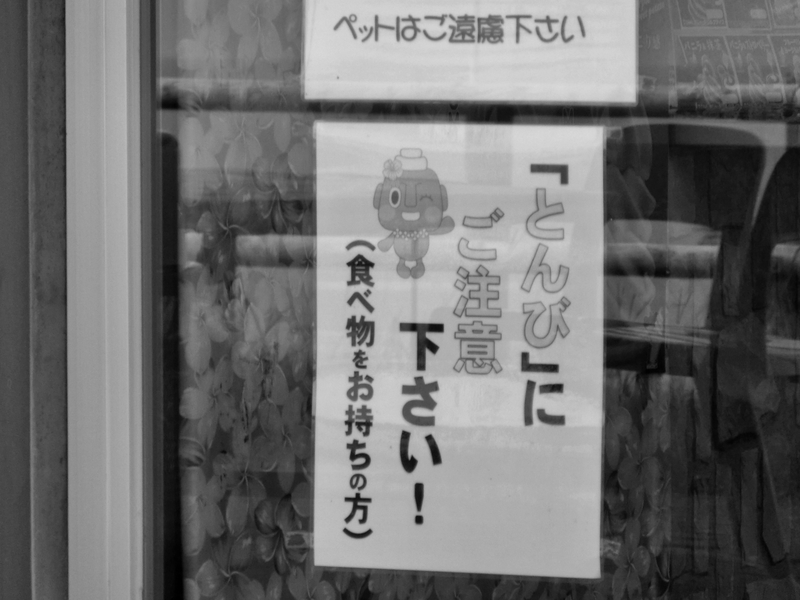 ペットはご遠慮下さい
「とんび」に
ご注意
下さい！
（食べ物をお持ちの方）